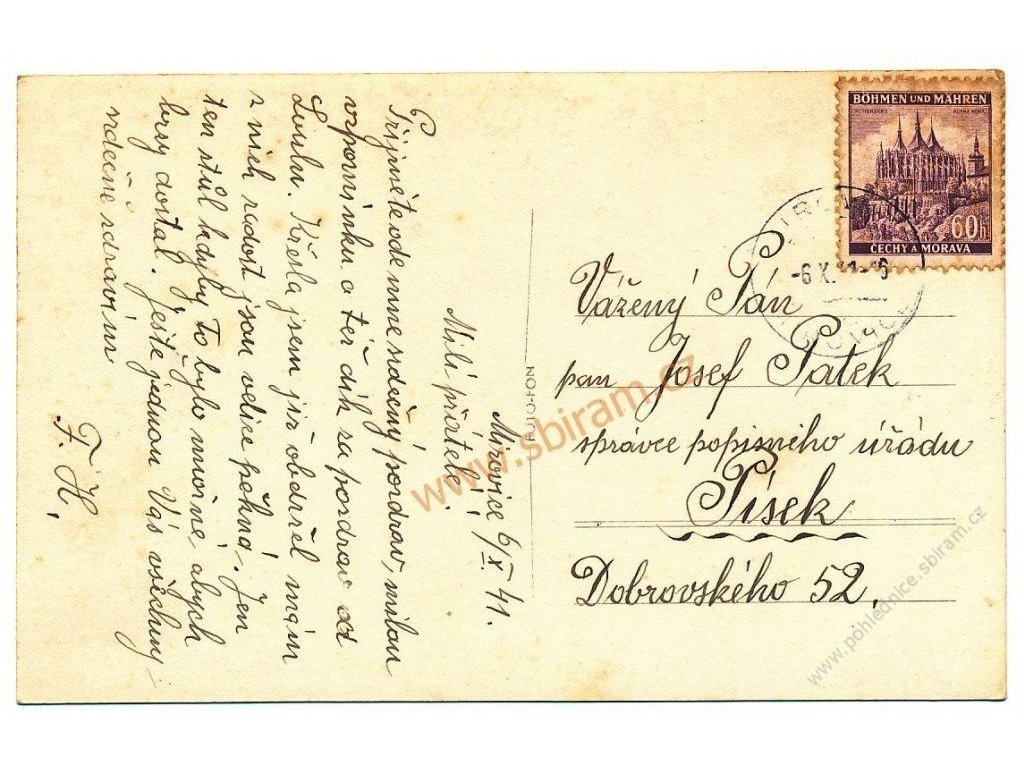 Mirovice 6/X. 41.
Milí přátelé!
Přijměte ode mne srdečný pozdrav, milou
vzpomínku a též dík za pozdrav od
Loulu. Křesla jsem již obdržel mám
z nich radost jsou velice pěkná. Jen
ten stůl kdyby to bylo možné, abych
brzy dostal. Ještě jednou Vás všechny
srdečně zdravím
F. H.
BÖHMEN UND MÄHREN
60h
ČECHY A MORAVA
-6.X.41-16
Vážený Pán
pan Josef Pátek
správce popisného úřadu
Písek
Dobrovského 52.
www.sbiram.cz
www.pohlednice.sbiram.cz